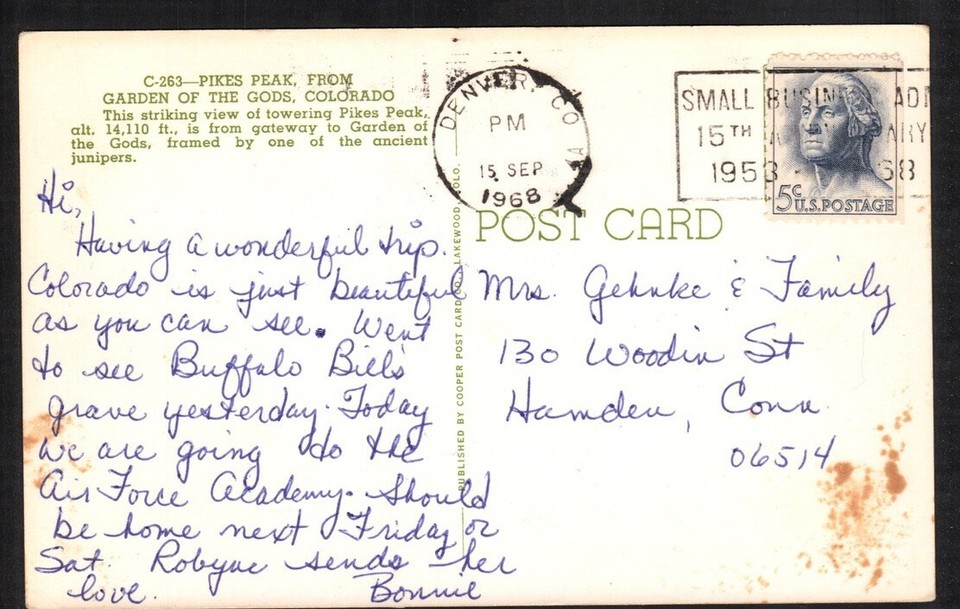 C-263—PIKES PEAK, FROM
GARDEN OF THE GODS, COLORADO
This striking view of towering Pikes Peak,
alt. 14,110 ft., is from gateway to Garden of
the Gods, framed by one of the ancient
junipers.
Hi,
Having a wonderful trip.
Colorado is just beautiful
as you can see. Went
to see Buffalo Bill's
grave yesterday. Today
we are going to the
Air Force Academy. Should
be home next Friday or
Sat. Robyne sends her
love. Bonnie
PUBLISHED BY COOPER POST CARD CO., LAKEWOOD, COLO.
DENVER, CO
PM
15 SEP
1968
SMALL BUSIN ADM
15TH A ARY
1953 - 68
5c U.S.POSTAGE
POST CARD
Mrs. Gehnke & Family
130 Woodin St
Hamden, Conn.
06514